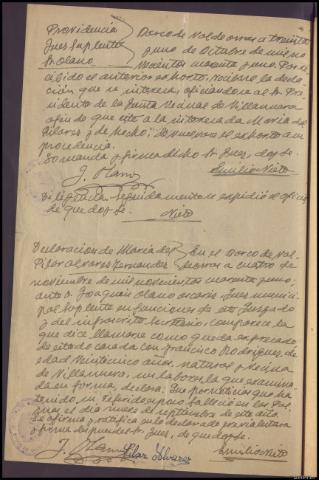 Providencia
Juez Suplente
Sr. Olano.
Barco de Valdeorras a treinta
y uno de Octubre de mil no
vecientos cuarenta y uno. Por re
cibido el anterior exhorto, recíbase la decla
ración que se interesa, oficiándose al Sr. Pre
sidente de la Junta Vecinal de Villanueva
a fin de que cite a la interesada María del
Pilar y hecho, devuélvase el exhorto a su
procedencia.
Lo manda y firma dicho Sr. Juez, doy fe.
J. Olano
Emilio Nieto
Diligencia. Seguidamente se expidió el oficio
de que doy fe.
Nieto
Declaración de María del
Pilar Alvarez Fernandez
En el Barco de Val
deorras a cuatro de
noviembre de mil novecientos cuarenta y uno,
ante D. Joaquín Olano Juez munici
pal Suplente en funciones de este Juzgado
y del infrascrito Secretario, comparece la
que dice llamarse como queda expresado
de estado casada con Francisco Rodriguez, de
edad veintiocinco años, natural y vecina
de Villanueva, sus labores, la que examina
da en forma, declara:
el día nueve de septiembre de este año.
Se afirma y ratifica en lo declarado previa lectura
y firma después del Sr. Juez, de que doy fe.
J. Olano
Pilar Alvarez
Emilio Nieto